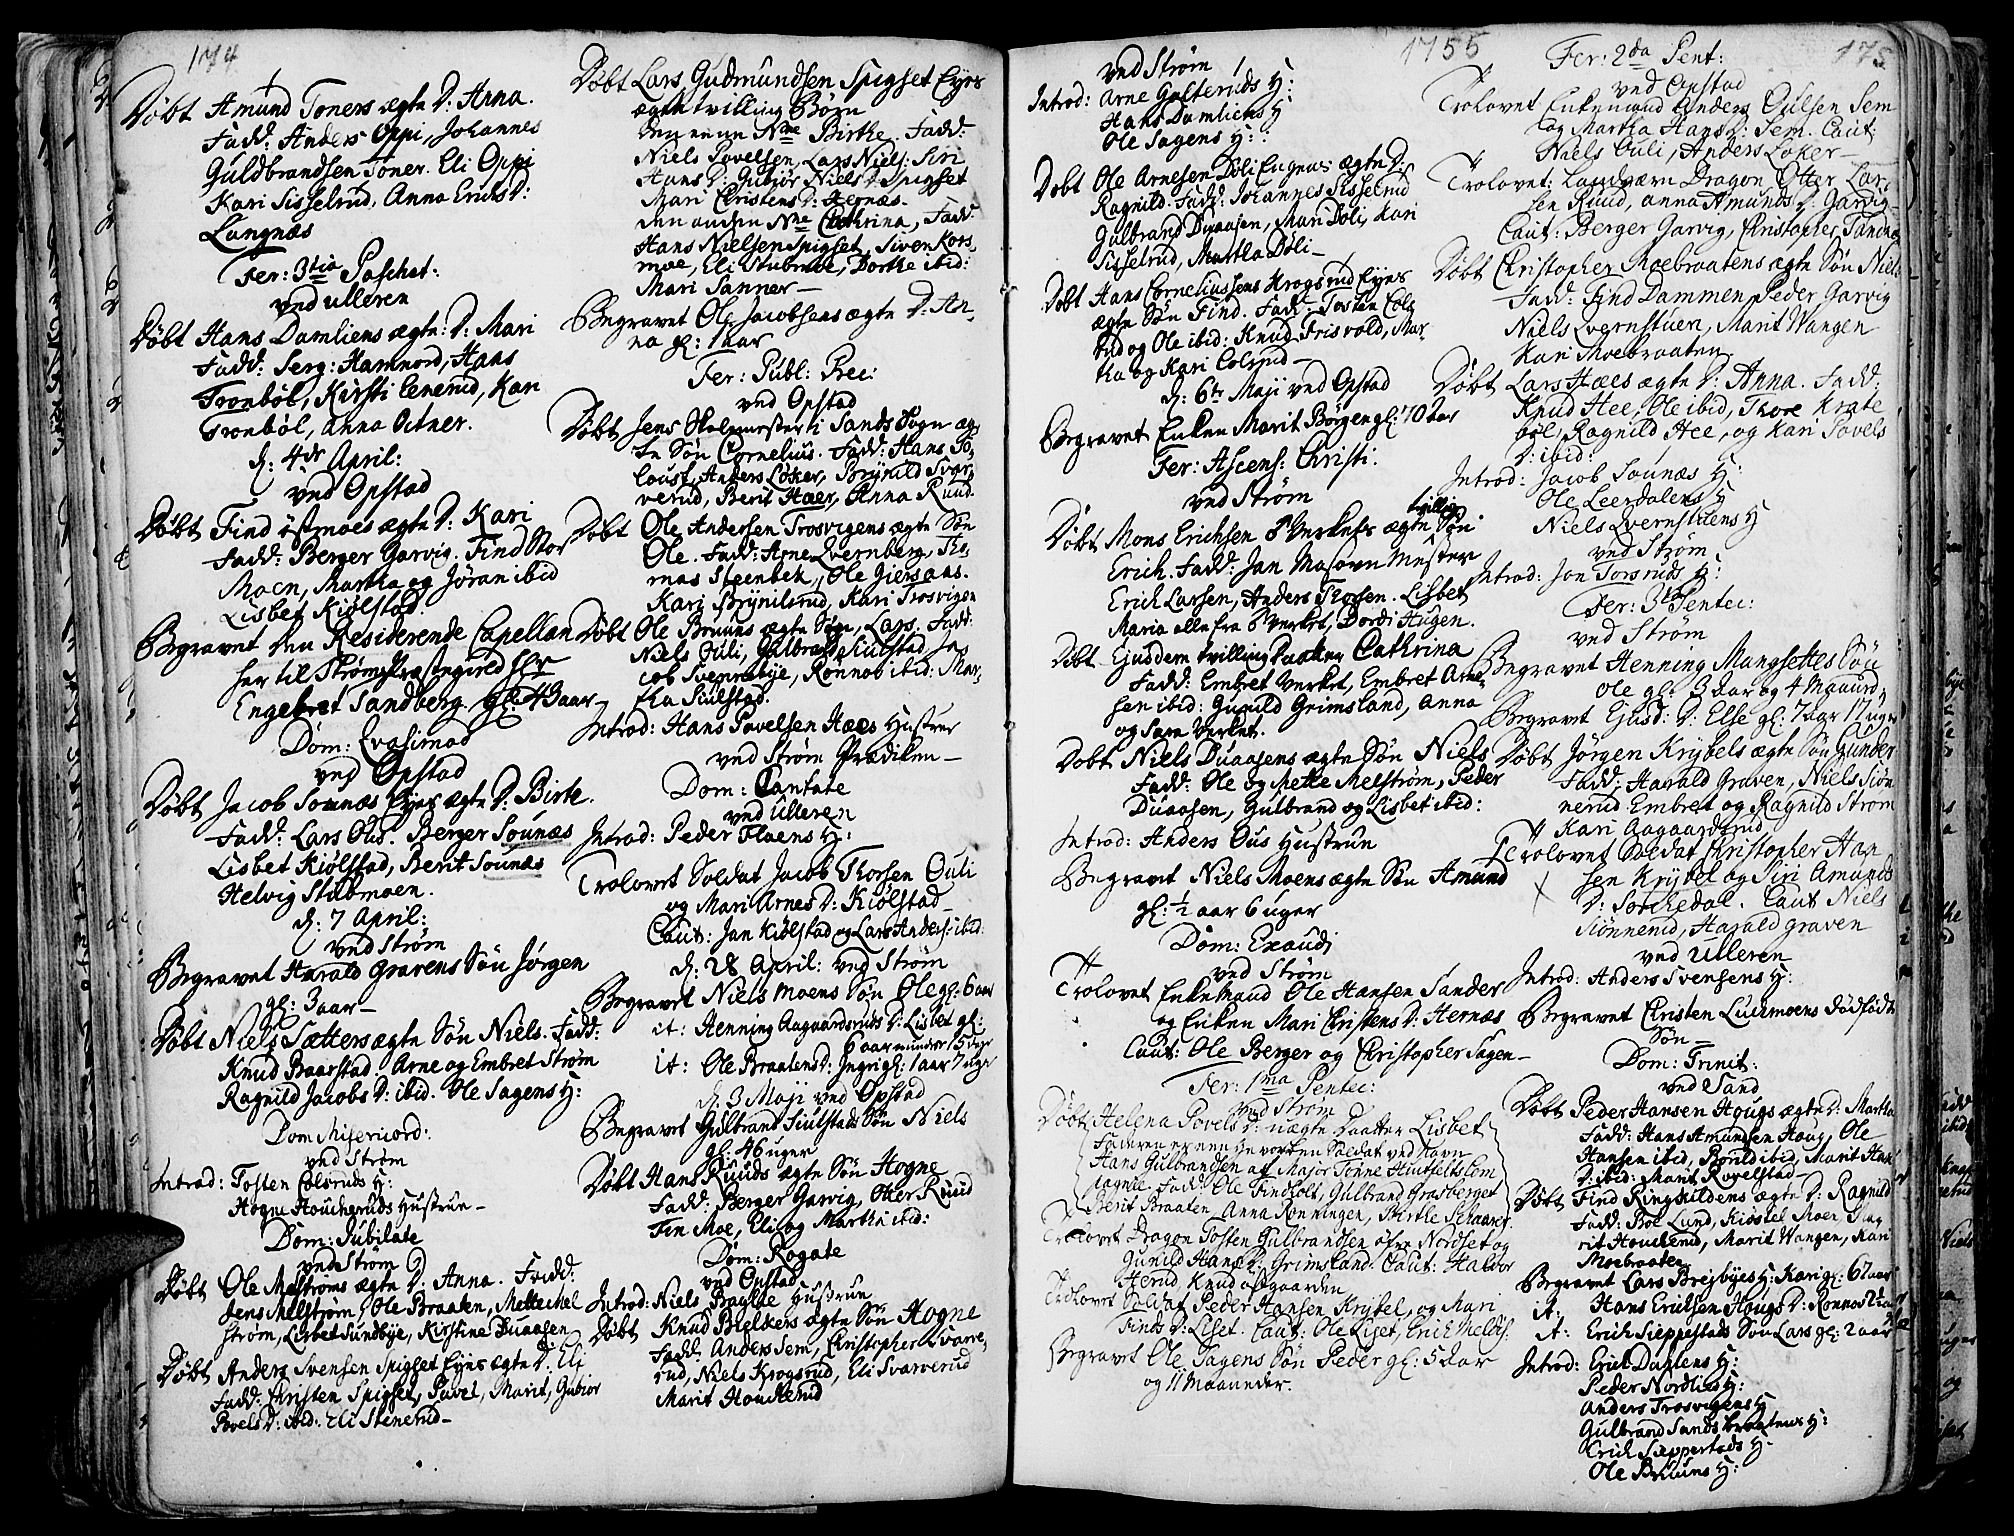 174
Døbt Amund Toners ægte D: Anna.
Fadd: Anders Oppi, Johannes
Guldbrandsen Toner. Eli Oppi
Kari Sisselrud, Anna Erichs D:
Langnæs
Fer: 3tia Paschat:
ved Ulleren
Døbt Hans Damliens ægte D: Mari
Fadd: Serg: Hammord, Hans
Tronbøl, Kirsti Enerud, Kari
Tronbøl, Anna Ditner.
d: 4de April:
ved Opstad
Døbt Find Østmoes ægte D: Kari
Fadd: Berger Garvig. Find Stor
Moen, Martha og Jøran ibid
Lisbet Kiølstad
Begravet den Residerende Capellan
her til Strøms Præstegield Hr
Engebret Sandberg gl: 43 aar
Dom: Qvasimod
ved Opstad
Døbt Jacob Sounæs Eyes ægte D: Birte.
Fadd: Lars Ous. Berger Sounæs
Lisbet Kiølstad, Berit Sounæs
Helvig Stubmoen.
d: 7 April:
ved Strøm
Begravet Harald Gravens Søn Jørgen
gl: 3 aar
Døbt Niels Sætters ægte Søn Niels. Fadd:
Knud Baarstad. Arne og Embret Strøm
Ragnild Jacobs D: ibid. Ole Sagens H:
Dom Misericord:
ved Strøm
Introd: Tosten Colsruds H:
Hogne Houcheruds Hustrue
Dom: Jubilate
ved Strøm
Døbt Ole Melstrøms ægte D: Anna. Fadd:
Jens Melstrøm, Ole Braaten, Mette Mel
strøm, Lisbet Sundbye, Kirstine Duaasen
Døbt Anders Svensen Spigset Eyes ægte D: Eli
Fadd: Christen Spigset, Povel, Marit, Gubior
Povels D: ibid: Eli Stenerud
Døbt Lars Gudmundsen Spigset Eyes
ægte tvilling Børn
den eene Nne Birthe. Fadd:
Niels Povelsen, Lars Niels: Siri
Hans D: Gubiør Niels D: Spigset
Mari Christens D: Hernæs.
den anden Nne Cathrina, Fadd:
Hans Nielsen Spigset, Siven Kors
moe, Eli Stubmoe, Dorthe ibid:
Mari Sanner
Begravet Ole Jacobsens ægte D: An
na gl: 1 aar
Fer: Publ: Prec:
ved Opstad
Døbt Jens Skolemester i Sands Sogn æg
te Søn Cornelius. Fadd: Hans To
lousf, Anders Løker, Brynild Svar
verud, Berit Haer, Anna Ruud.
Døbt Ole Andersen Trosvigens ægte Søn
Ole. Fadd: Arne Qvernberg, Tho
mas Steenbek, Ole Giersaas.
Kari Brynilsrud, Kari Trosvigen
Døbt Ole Bruuns ægte Søn, Lars. Fadd:
Niels Ouli, Gulbrand Siulstad Ja
cob Svennebye, Rønnov ibid: Mar
tha Siulstad.
Introd: Hans Povelsen Hæes Hustrue
ved Strøm Prædiken
Dom: Cantate
ved Ulleren
Introd: Peder Flaens H:
Trolovet Soldat Jacob Thorsen Ouli
og Mari Arnes D: Kiølstad
Caut: Jan Kiølstad og Lars Anders: ibid
d: 28 April: ved Strøm
Begravet Niels Moens Søn Ole gl: 6 aar
it: Henning Aagaardsruds D: Lisbet gl:
6 aar mindre 15 dage
it: Ole Braatens D: Ingri gl: 1 aar 7 uger
d: 3 Maji ved Opstad
Begravet Gulbrand Siulstads Søn Niels
gl: 46 uger
Døbt Hans Ruuds ægte Søn Hogne
Fadd: Berger Garvig, Otter Ruud
Fin Moe, Eli og Martha ibid:
Dom: Rogate
ved Opstad
Introd: Niels Baglae Hustrue
Døbt Knud Bielkers ægte Søn Hogne
Fadd: Anders Sem, Christopher Svarve
rud, Niels Krogsrud, Eli Svarverud
Marit Houcherud
1755
ved Strøm
Introd: Arne Galteruds H:
Hans Damliens H
Ole Sagens H:
Døbt Ole Arnesen Døli Engens ægte D:
Ragnild. Fadd: Johannes Sisselrud
Gulbrand Duaasen, Mari Døli, Kari
Sisselrud, Martha Døli
Døbt Hans Corneliussens Krogsrud Eyes
ægte Søn Find. Fadd: Tosten Cols
rud og Ole ibid: Knud Frisvold, Mar
tha og Kari Colsrud
d: 6te Maji ved Opstad
Begravet Enken Marit Børgen gl: 70 aar
Fer: Ascens: Christi.
ved Strøm
Døbt Mons Erichsen Verkets ægte tvilling Søn
Erich. Fadd: Jan Masovn Mester
Erich Larsen, Anders Thorsen. Lisbet
Maria alle fra Verket, Dordi Haugen.
Døbt Ejusdem tvilling Daatter Cathrina
Fadd: Embret Verket, Embret Arne
sen ibid: Gunild Grimsland, Anna
og Sara Verket.
Døbt Niels Duaasens ægte Søn Niels
Fadd: Ole og Mette Melstrøm, Peder
Duaasen, Gulbrand og Lisbet ibid:
Introd: Anders Ous Hustrue
Begravet Niels Moens ægte Søn Amund
gl: 1/2 aar 6 uger
Dom: Exaudi
ved Strøm
Trolovet Enkemand Ole Hansen Sander
og Enken Mari Christens D: Hernæs
Caut: Ole Berger og Christopher Sagen
Fer: 1ma Pentec:
ved Strøm
Døbt Helena Povels D: uægte Daatter Lisbet
Faderen er een Gevorben Soldat ved Navn
Hans Gulbrandsen af Major Tønne Huitfelts Com
pagnie. Fadd: Ole Findholt, Gulbrand Grasberget
Berit Braaten, Anna Rønningen, Birthe Schaarer.
Trolovet Dragon Tosten Gulbrandsen øfre Nordset og
Gunild Hans D: Grimsland. Caut: Halvor
Herud Knud Opgaarden
Trolovet Soldat Peder Hansen Krybel, og Mari
Finds D: Liset. Caut: Ole Liset, Erich Melbs.
Begravet Ole Sagens Søn Peder gl: 5 aar
og 11 Maaneder.
175
Fer: 2da Pent:
ved Opstad
Trolovet Enkemand Anders Oulsen Sem
og Martha Hans D: Sem. Caut:
Niels Ouli, Anders Løker
Trolovet: Landværn Dragon Otter Lar
sen Ruud, Anna Amunds D: Garvig
Caut: Berger Garvig, Christopher Tandnæ
Døbt Christopher Moebraatens ægte Søn Niels
Fadd: Find Dammen, Peder Garvig
Niels Qvernstuen, Marit Wangen
Kari Moebraaten
Døbt Lars Hæes ægte D: Anna. Fadd:
Knud Hee, Ole ibid, Thore Krate
bøl, Ragnild Hee, og Kari Povels
D: ibid:
Introd: Jacob Sounæs H:
Ole Leerdalens H
Niels Qvernstuens H
ved Strøm
Introd: Jon Torsruds H:
Fer: 3tia Pentec:
ved Strøm
Begravet Henning Mangsettes Søn
Ole gl: 3 aar og 4 Maaned
Begravet Ejusd: D: Else gl: 7 aar 17 uger
Døbt Jørgen Krybels ægte Søn Gunder
Fadd: Harald Graven, Niels Siøn
nerud Embret og Ragnild Strøm
Kari Aagaardsrud
Trolovet Soldat Christopher Han
sen Krybel og Siri Amunds
D: Sorchedal. Caut Niels
Siønnerud, Harald Graven
ved Ulleren
Introd: Anders Svensens H:
Begravet Christen Luchmoens dødfødte
Søn
Dom: Trinit:
ved Sand
Døbt Peder Hansen Hougs ægte D: Martha
Fadd: Hans Amundsen Houg, Ole
Hansen ibid, Bønild ibid, Marit Hans
D: ibid: Marit Rovelstad
Døbt Find Ringkildens ægte D: Ragnild
Fadd: Boe Lund, Kiøstel Moen, Mag
rit Houcherud, Marit Wangen, Mari
Moebraaten
Begravet Lars Brejbyes H: Kari gl: 67 aar
it: Hans Erichsen Hougs D: Rønnov 2 aar
it: Erich Sieppestads Søn Lars gl: 2 aar
Introd: Erich Dahlens H:
Peder Nordlies H:
Anders Trosvigens H
Gulbrand Sandsbraatens H:
Erich Sieppestads H
Ole Bruuns H: